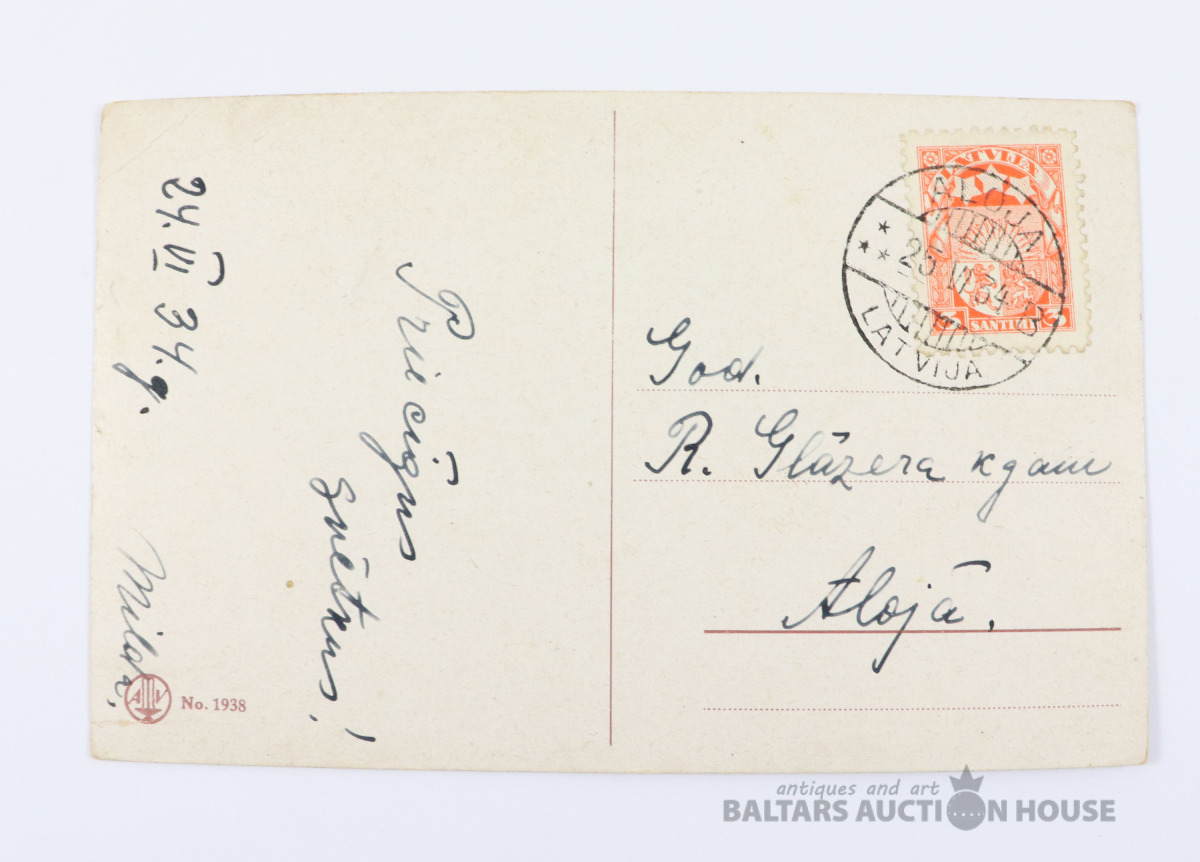 24. VI 34. g.
Priecīgus
svētkus!
No. 1938
LATVIJA
SANTIMI
ALOJA
25 VI 34-13
LATVIJA
God.
R. Glāzera kgam
Alojā.
antiques and art
BALTARS AUCTION HOUSE